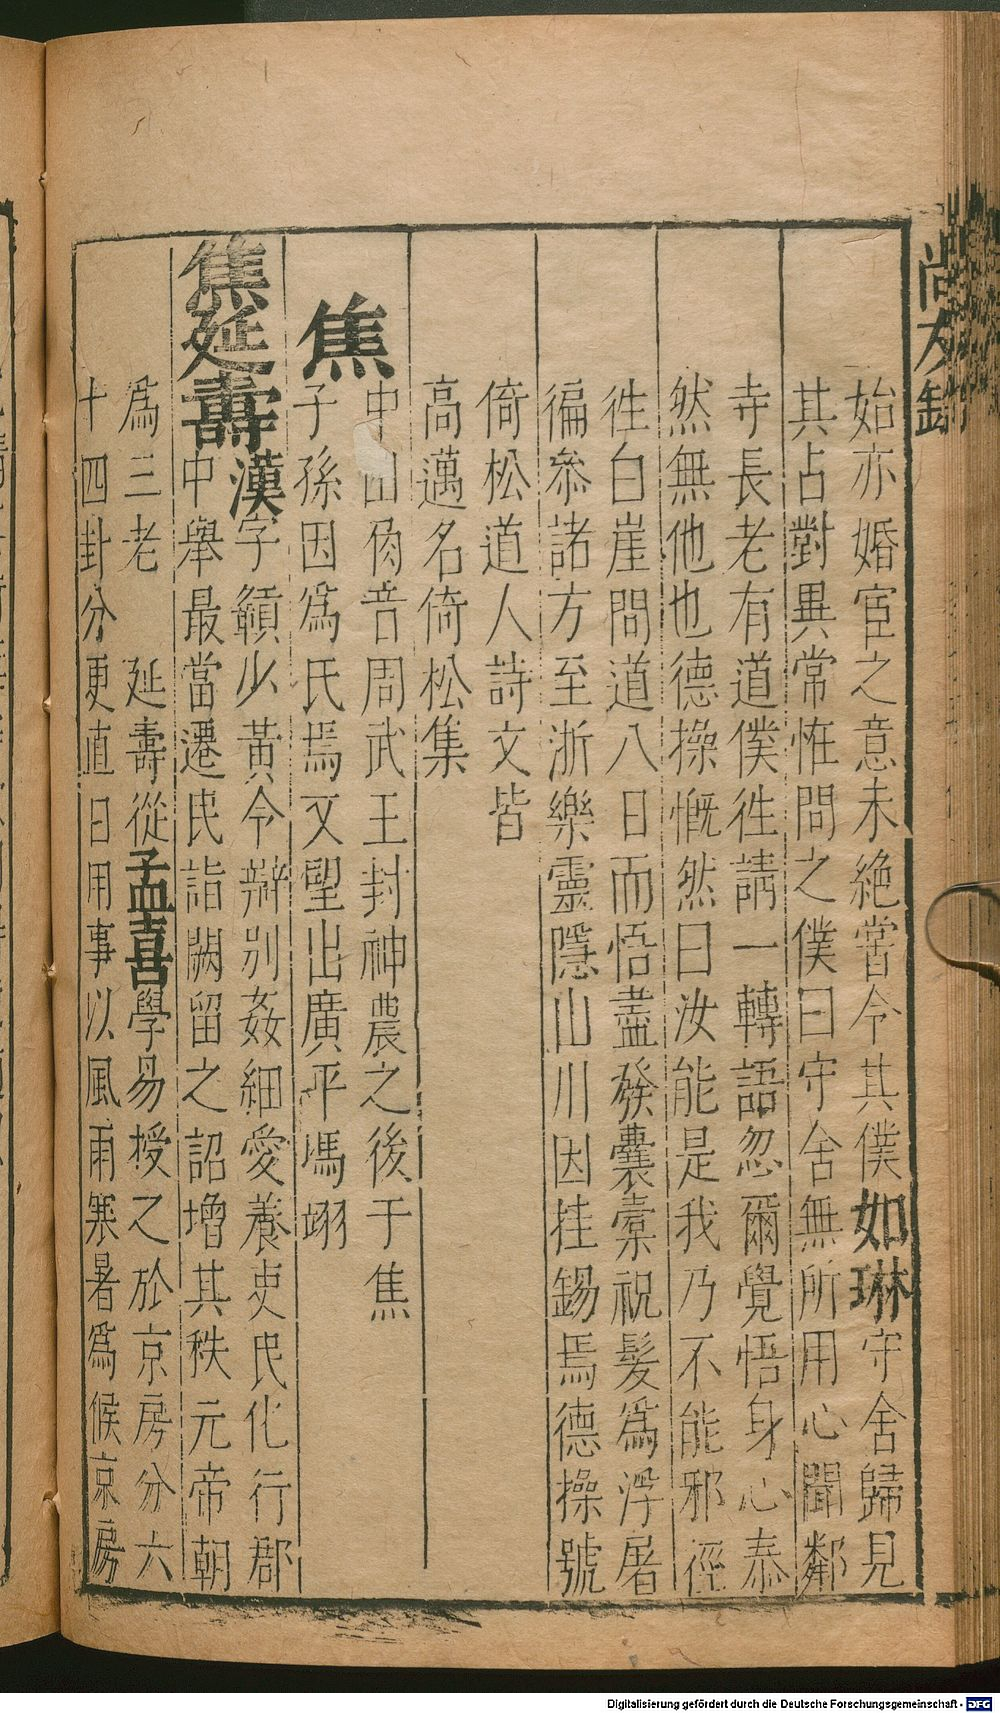 尚友錄
始亦婚宦之意未絶嘗令其僕如琳守舍歸見
其占對異常恠問之僕曰守舍無所用心聞鄰
寺長老有道僕徃請一轉語忽爾覺悟身心泰
然無他也德操慨然曰汝能是我乃不能邪徑
徃白崖問道八日而悟盡發囊橐祝髮爲浮屠
徧叅諸方至浙樂靈隱山川因挂錫焉德操號
倚松道人詩文皆
高邁名倚松集
焦
中山角音周武王封神農之後于焦
子孫因爲氏焉又望出廣平馮翊
焦延壽
漢字贛少黃令辯别姦細愛養吏民化行郡
中舉最當遷民詣闕留之詔增其秩元帝朝
爲三老 延壽從孟喜學易授之於京房分六
十四卦分更直日用事以風雨寒暑爲候京房
Digitalisierung gefördert durch die Deutsche Forschungsgemeinschaft - DFG